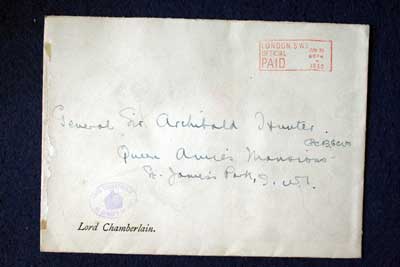 LONDON. S.W.1
OFFICIAL
PAID
General Sir Archibald Hunter.
Queen Anne's Mansions
St. James's Park, S. W.1.
Lord Chamberlain.